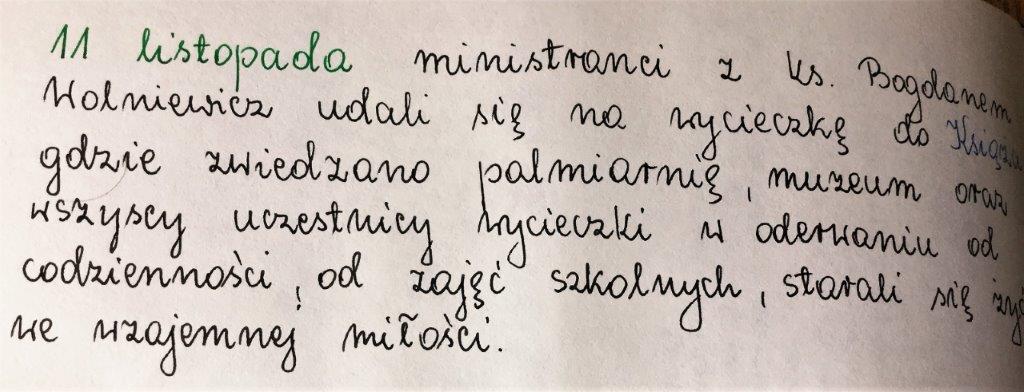 11 listopada ministranci z ks. Bogdanem
Wolniewicz udali się na wycieczkę do Książa
gdzie zwiedzano palmiarnię, muzeum oraz
wszyscy uczestnicy wycieczki w oderwaniu od
codzienności, od zajęć szkolnych, starali się żyć
we wzajemnej miłości.